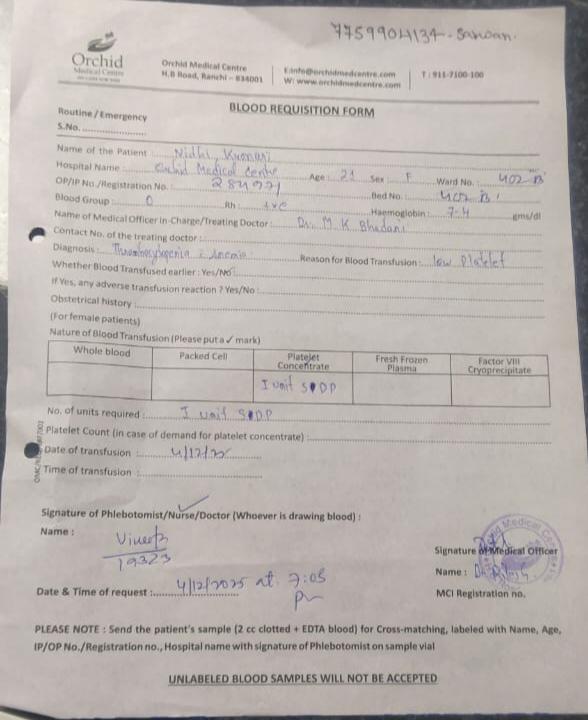 7759904134 - Sawan.
Orchid
Medical Centre
Orchid Medical Centre
H.B Road, Ranchi - 834001
E:info@orchidmedcentre.com
W: www.orchidmedcentre.com
T : 911-7100-100
BLOOD REQUISITION FORM
Routine / Emergency
S.No.
Name of the Patient : Nidhi Kumari
Hospital Name : Orchid Medical Centre Age : 21 Sex F Ward No. : 402 B
OP/IP No./Registration No. Bed No. 402 B
Blood Group : O Rh : +ve Haemoglobin : 7.4 gms/dl
Name of Medical Officer In-Charge/Treating Doctor : Dr. M K Bhadani
Contact No. of the treating doctor :
Diagnosis : Anemia Reason for Blood Transfusion : low Platelet
Whether Blood Transfused earlier : Yes/No
If Yes, any adverse transfusion reaction ? Yes/No :
Obstetrical history :
(For female patients)
Nature of Blood Transfusion (Please put a ✓ mark)
Whole blood Packed Cell Platelet Concentrate Fresh Frozen Plasma Factor VIII Cryoprecipitate
I unit SDP
No. of units required : I unit SDP
Platelet Count (in case of demand for platelet concentrate) :
Date of transfusion : 4/12/25
Time of transfusion :
Signature of Phlebotomist/Nurse/Doctor (Whoever is drawing blood) :
Name : Vineeta
19323
Signature of Medical Officer
Name : Dr.
MCI Registration no.
Date & Time of request : 4/12/2025 at 7:05 pm
PLEASE NOTE : Send the patient's sample (2 cc clotted + EDTA blood) for Cross-matching, labeled with Name, Age,
IP/OP No./Registration no., Hospital name with signature of Phlebotomist on sample vial
UNLABELED BLOOD SAMPLES WILL NOT BE ACCEPTED